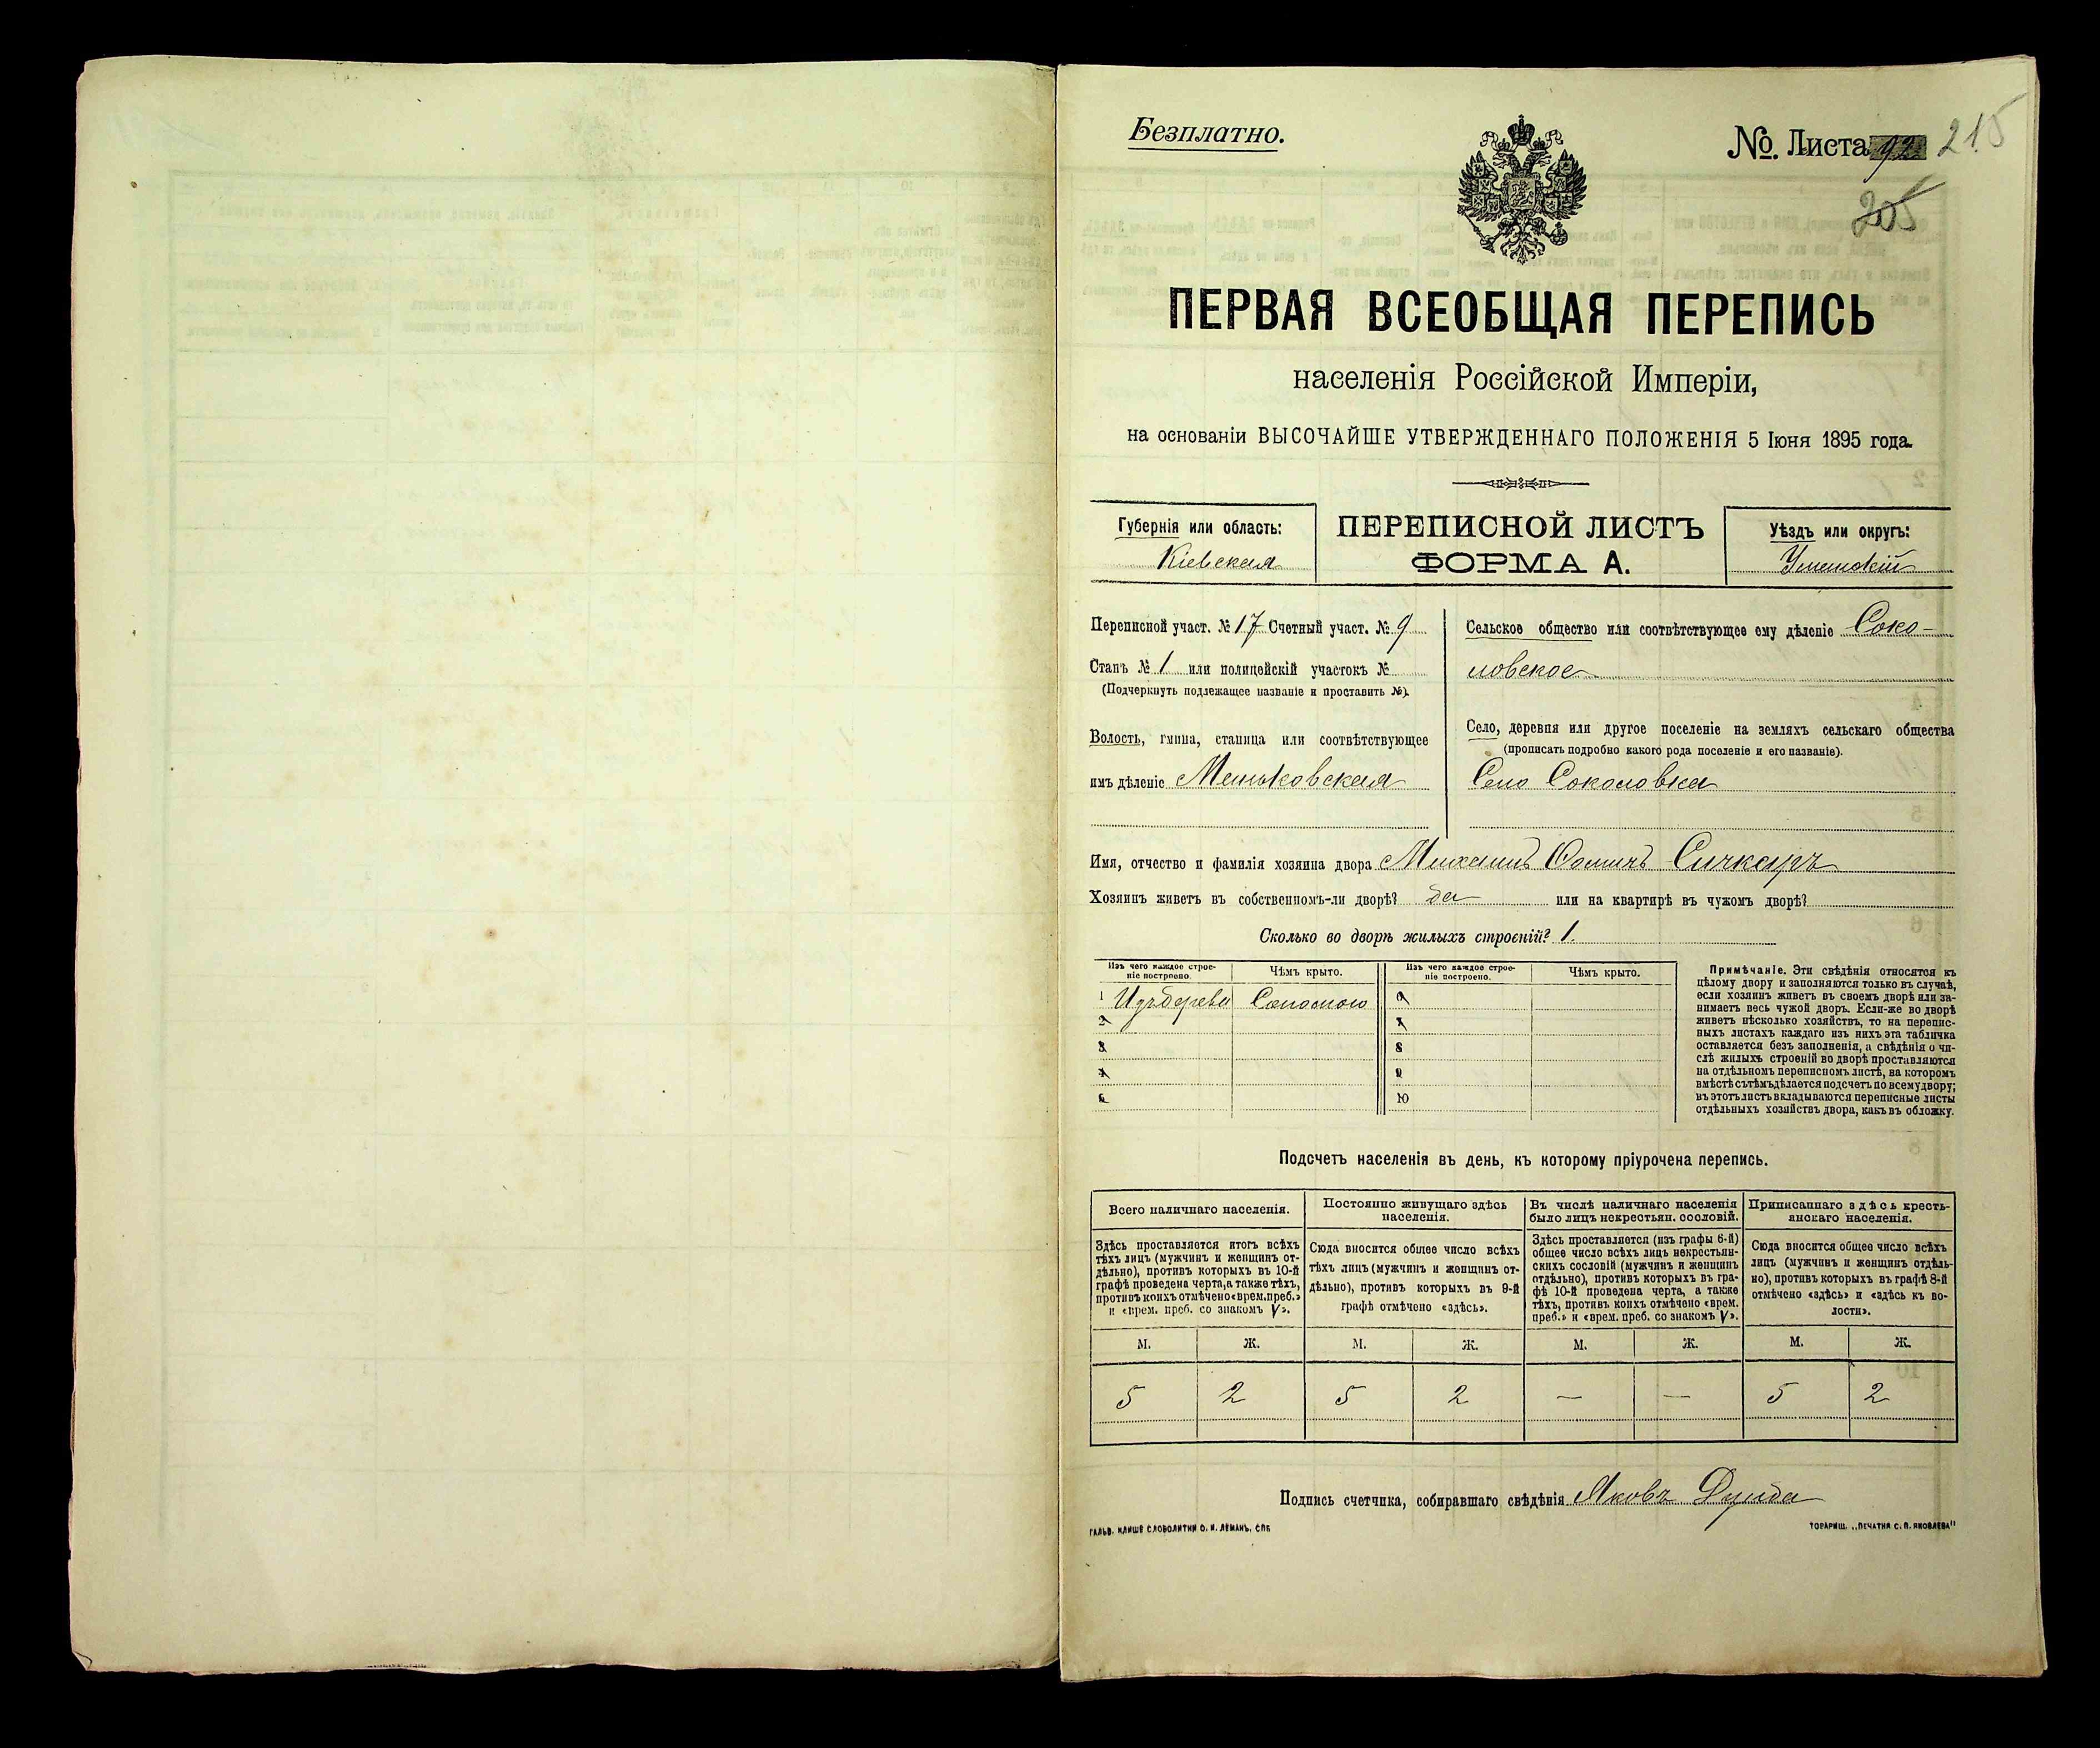 Безплатно.
№. Листа 92 215
205
ПЕРВАЯ ВСЕОБЩАЯ ПЕРЕПИСЬ
населенія Россійской Имперіи,
на основаніи ВЫСОЧАЙШЕ УТВЕРЖДЕННАГО ПОЛОЖЕНІЯ 5 Іюня 1895 года.
Губернія или область:
Кіевская
ПЕРЕПИСНОЙ ЛИСТЪ
ФОРМА А.
Уѣздъ или округъ:
Уманскій
Переписной участ. № 17 Счетный участ. № 9
Станъ № 1 или полицейскій участокъ №
(Подчеркнуть подлежащее названіе и проставить №).
Волость, гмина, станица или соотвѣтствующее
имъ дѣленіе Маньковская
Сельское общество или соотвѣтствующее ему дѣленіе Соко-
ловское
Село, деревня или другое поселеніе на земляхъ сельскаго общества
(прописать подробно какого рода поселеніе и его названіе).
Село Соколовка
Имя, отчество и фамилія хозяина двора Михаилъ Фомичъ Сичкарь
Хозяинъ живетъ въ собственномъ-ли дворѣ? да или на квартирѣ въ чужомъ дворѣ?
Сколько во дворѣ жилыхъ строеній? 1.
Изъ чего каждое строе-
ніе построено.
Чѣмъ крыто.
Изъ чего каждое строе-
ніе построено.
Чѣмъ крыто.
1 Изъ дерева Соломою
2
3
4
5
6
7
8
9
10
Примѣчаніе. Эти свѣдѣнія относятся къ
цѣлому двору и заполняются только въ случаѣ,
если хозяинъ живетъ въ своемъ дворѣ или за-
нимаетъ весь чужой дворъ. Если-же во дворѣ
живетъ нѣсколько хозяйствъ, то на перепис-
ныхъ листахъ каждаго изъ нихъ эта табличка
оставляется безъ заполненія, а свѣдѣнія о чи-
слѣ жилыхъ строеній во дворѣ проставляются
на отдѣльномъ переписномъ листѣ, на которомъ
вмѣстѣ съ тѣмъ дѣлается подсчетъ по всему двору;
въ этотъ листъ вкладываются переписные листы
отдѣльныхъ хозяйствъ двора, какъ въ обложку.
Подсчетъ населенія въ день, къ которому пріурочена перепись.
Всего наличнаго населенія.
Здѣсь проставляется итогъ всѣхъ
тѣхъ лицъ (мужчинъ и женщинъ от-
дѣльно), противъ которыхъ въ 10-й
графѣ проведена черта, а также тѣхъ,
противъ коихъ отмѣчено «врем. преб.»
и «врем. преб. со знакомъ V».
Постоянно живущаго здѣсь
населенія.
Сюда вносится общее число всѣхъ
тѣхъ лицъ (мужчинъ и женщинъ от-
дѣльно), противъ которыхъ въ 9-й
графѣ отмѣчено «здѣсь».
Въ числѣ наличнаго населенія
было лицъ некрестьян. сословій.
Здѣсь проставляется (изъ графы 6-й)
общее число всѣхъ лицъ некрестьян-
скихъ сословій (мужчинъ и женщинъ
отдѣльно), противъ которыхъ въ гра-
фѣ 10-й проведена черта, а также
тѣхъ, противъ коихъ отмѣчено «врем.
преб.» и «врем. преб. со знакомъ V».
Приписаннаго здѣсь кресть-
янскаго населенія.
Сюда вносится общее число всѣхъ
лицъ (мужчинъ и женщинъ отдѣль-
но), противъ которыхъ въ графѣ 8-й
отмѣчено «здѣсь» и «здѣсь къ во-
лости».
М. Ж. М. Ж. М. Ж. М. Ж.
5 2 5 2 — — 5 2
Подпись счетчика, собиравшаго свѣдѣнія Яковъ
ГАЛЬВ. КЛИШЕ СЛОВОЛИТНИ О. И. ЛЕМАНЪ, СПБ
ТОВАРИЩ. „ПЕЧАТНЯ С. П. ЯКОВЛЕВА"